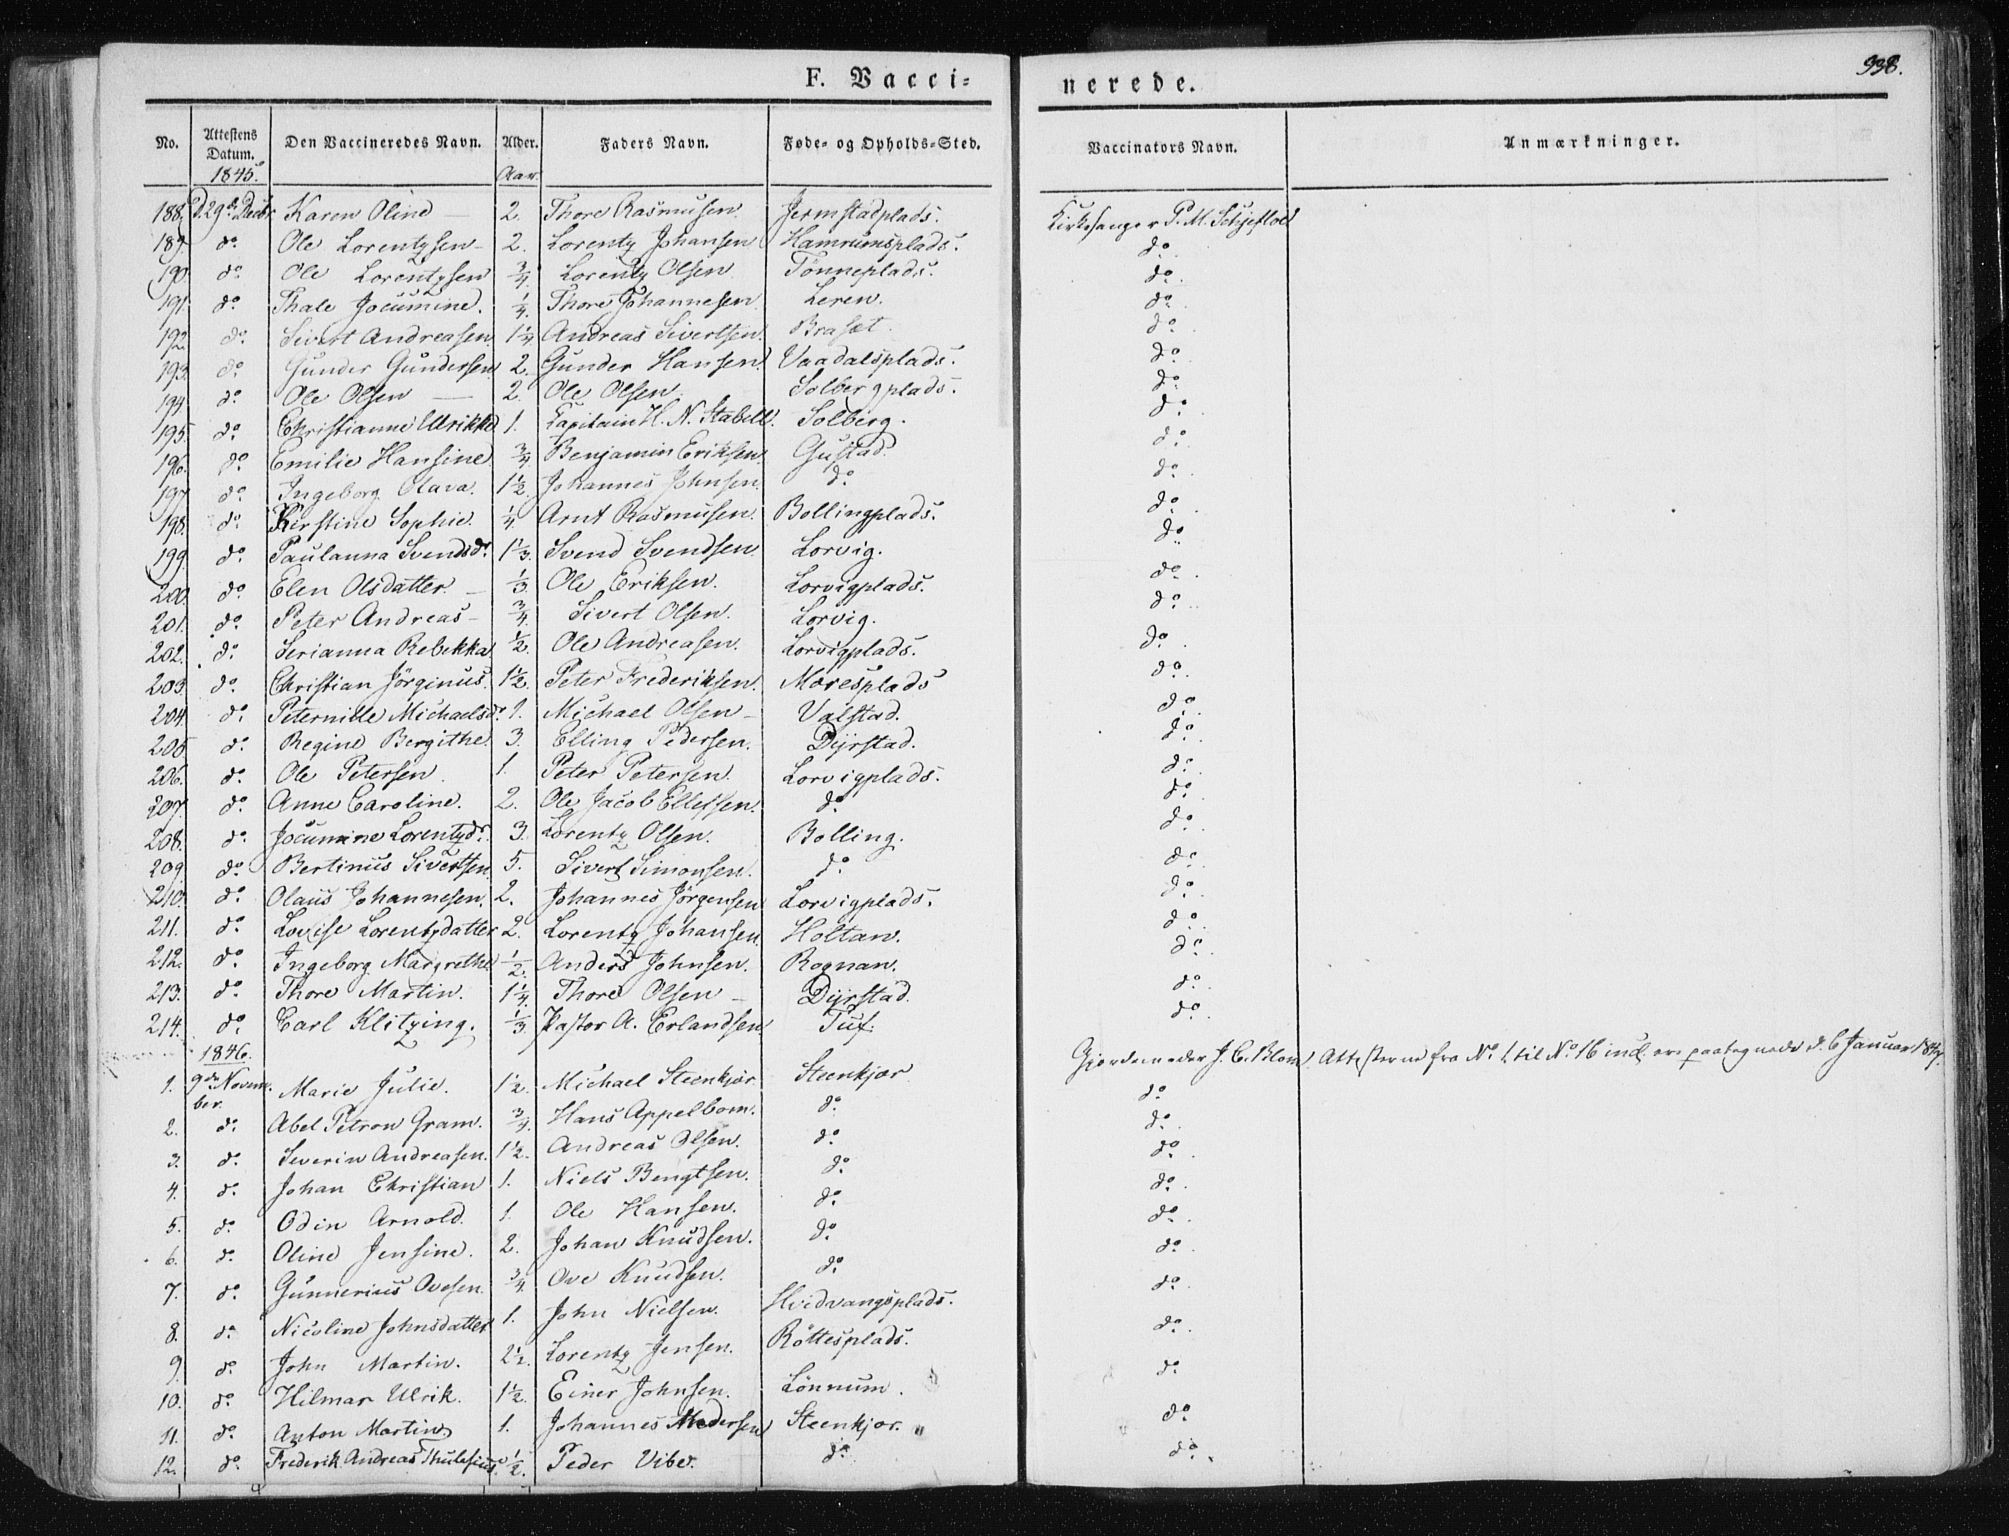 338.
F. Vacci=
nerede.
No. Attestens Datum. Den Vaccineredes Navn. Alder. Faders Navn. Føde- og Opholds-Sted. Vaccinators Navn. Anmærkninger.
1845. Aar.
188. d. 29de Decbr. Karen Oline — 2. Thore Rasmusen. Jermstadplads. Kirkesanger P. M. Schjeflod
189. do Ole Lorentzsen — 2. Lorentz Johansen Hamrumsplads. do
190. do Ole Lorentzsen 3/4. Lorentz Olsen. Tønneplads. do
191. do Thale Jocumine. 1/4. Thore Johannesen Leren. do
192. do Sivert Andreasen 1 1/4 Andreas Sivertsen. Braset. do
193. do Gunder Gundersen 2. Gunder Hansen. Vaadalsplads. do
194. do Ole Olsen — 2. Ole Olsen. Solbergplads. do
195. do Christianne Ulrikke 1. Capitain H. N. Stabell. Solberg. do
196. do Emilie Hansine 3/4 Benjamin Eriksen. Gustad. do
197. do Ingeborg Olava. 1 1/2. Johannes Johnsen. do do
198. do Kirstine Sophie. 1/4. Arnt Rasmusen. Bollingplads. do
199. do Paulanna Svendsdr. 1 1/3. Svend Svendsen. Lorvig. do
200. do Elen Olsdatter. — 1/3 Ole Eriksen. Lorvigplads. do
201. do Peter Andreas — 3/4. Sivert Olsen. Lorvig. do
202. do Serianna Rebekka 1/2. Ole Andreasen. Lorvigplads. do
203. do Christian Jörginus. 1 1/2. Peter Frederiksen. Moresplads do
204. do Peternille Michaelsdr. 1. Michael Olsen — Valstad. do
205. do Regine Bergithe. 3. Elling Pedersen. Dyrstad. do
206. do Ole Petersen. 1. Peter Petersen. Lorvigplads. do
207. do Anne Caroline. 2. Ole Jacob Ellefsen. do do
208. do Jocumine Lorentzdr. 3. Lorentz Olsen. Bolling. do
209. do Bertinus Sivertsen. 5. Sivert Simonsen. do do
210. do Olaus Johannesen. 2. Johannes Jörgensen Lorvigplads. do
211. do Lovise Lorentzdatter 2. Lorentz Johansen. Holtan. do
212. do Ingeborg Margrethe 1/2. Anders Johnsen. Rognan. do
213. do Thore Martin. 1 1/4. Thore Olsen — Dyrstad. do
214. do Carl Klitzing. 1/3. Pastor A. Erlandsen Tuf. do
1846.
1. 9de November. Marie Julie. 1 1/2. Michael Steenkjær. Steenkjær Gjordemoder J. C. Blom. Attesterne fra No. 1 til No. 16 incl. ere paategnede d. 6 Januar 1847.
2. do Abel Petron Gram. 3/4. Hans Appelbom. do do
3. do Severin Andreasen. 1 1/2. Andreas Olsen. do do
4. do Johan Christian 1. Niels Bengtsen. do do
5. do Odin Arnold. 1. Ole Hansen. do do
6. do Oline Jensine. 2. Johan Knudsen. do do
7. do Gunnerius Ovesen. 3/4. Ove Knudsen. do do
8. do Nicoline Johnsdatter 1. John Nielsen. Hvidvangsplads. do
9. do John Martin. 2 1/2. Lorentz Jensen. Röttesplads. do
10. do Hilmar Ulrik. 1 1/2. Einer Johnsen. Lönnum. do
11. do Anton Martin 1. Johannes Medersen Steenkjær. do
12. do Frederik Andreas Thulesius. 1/2. Peder Vibe. do do